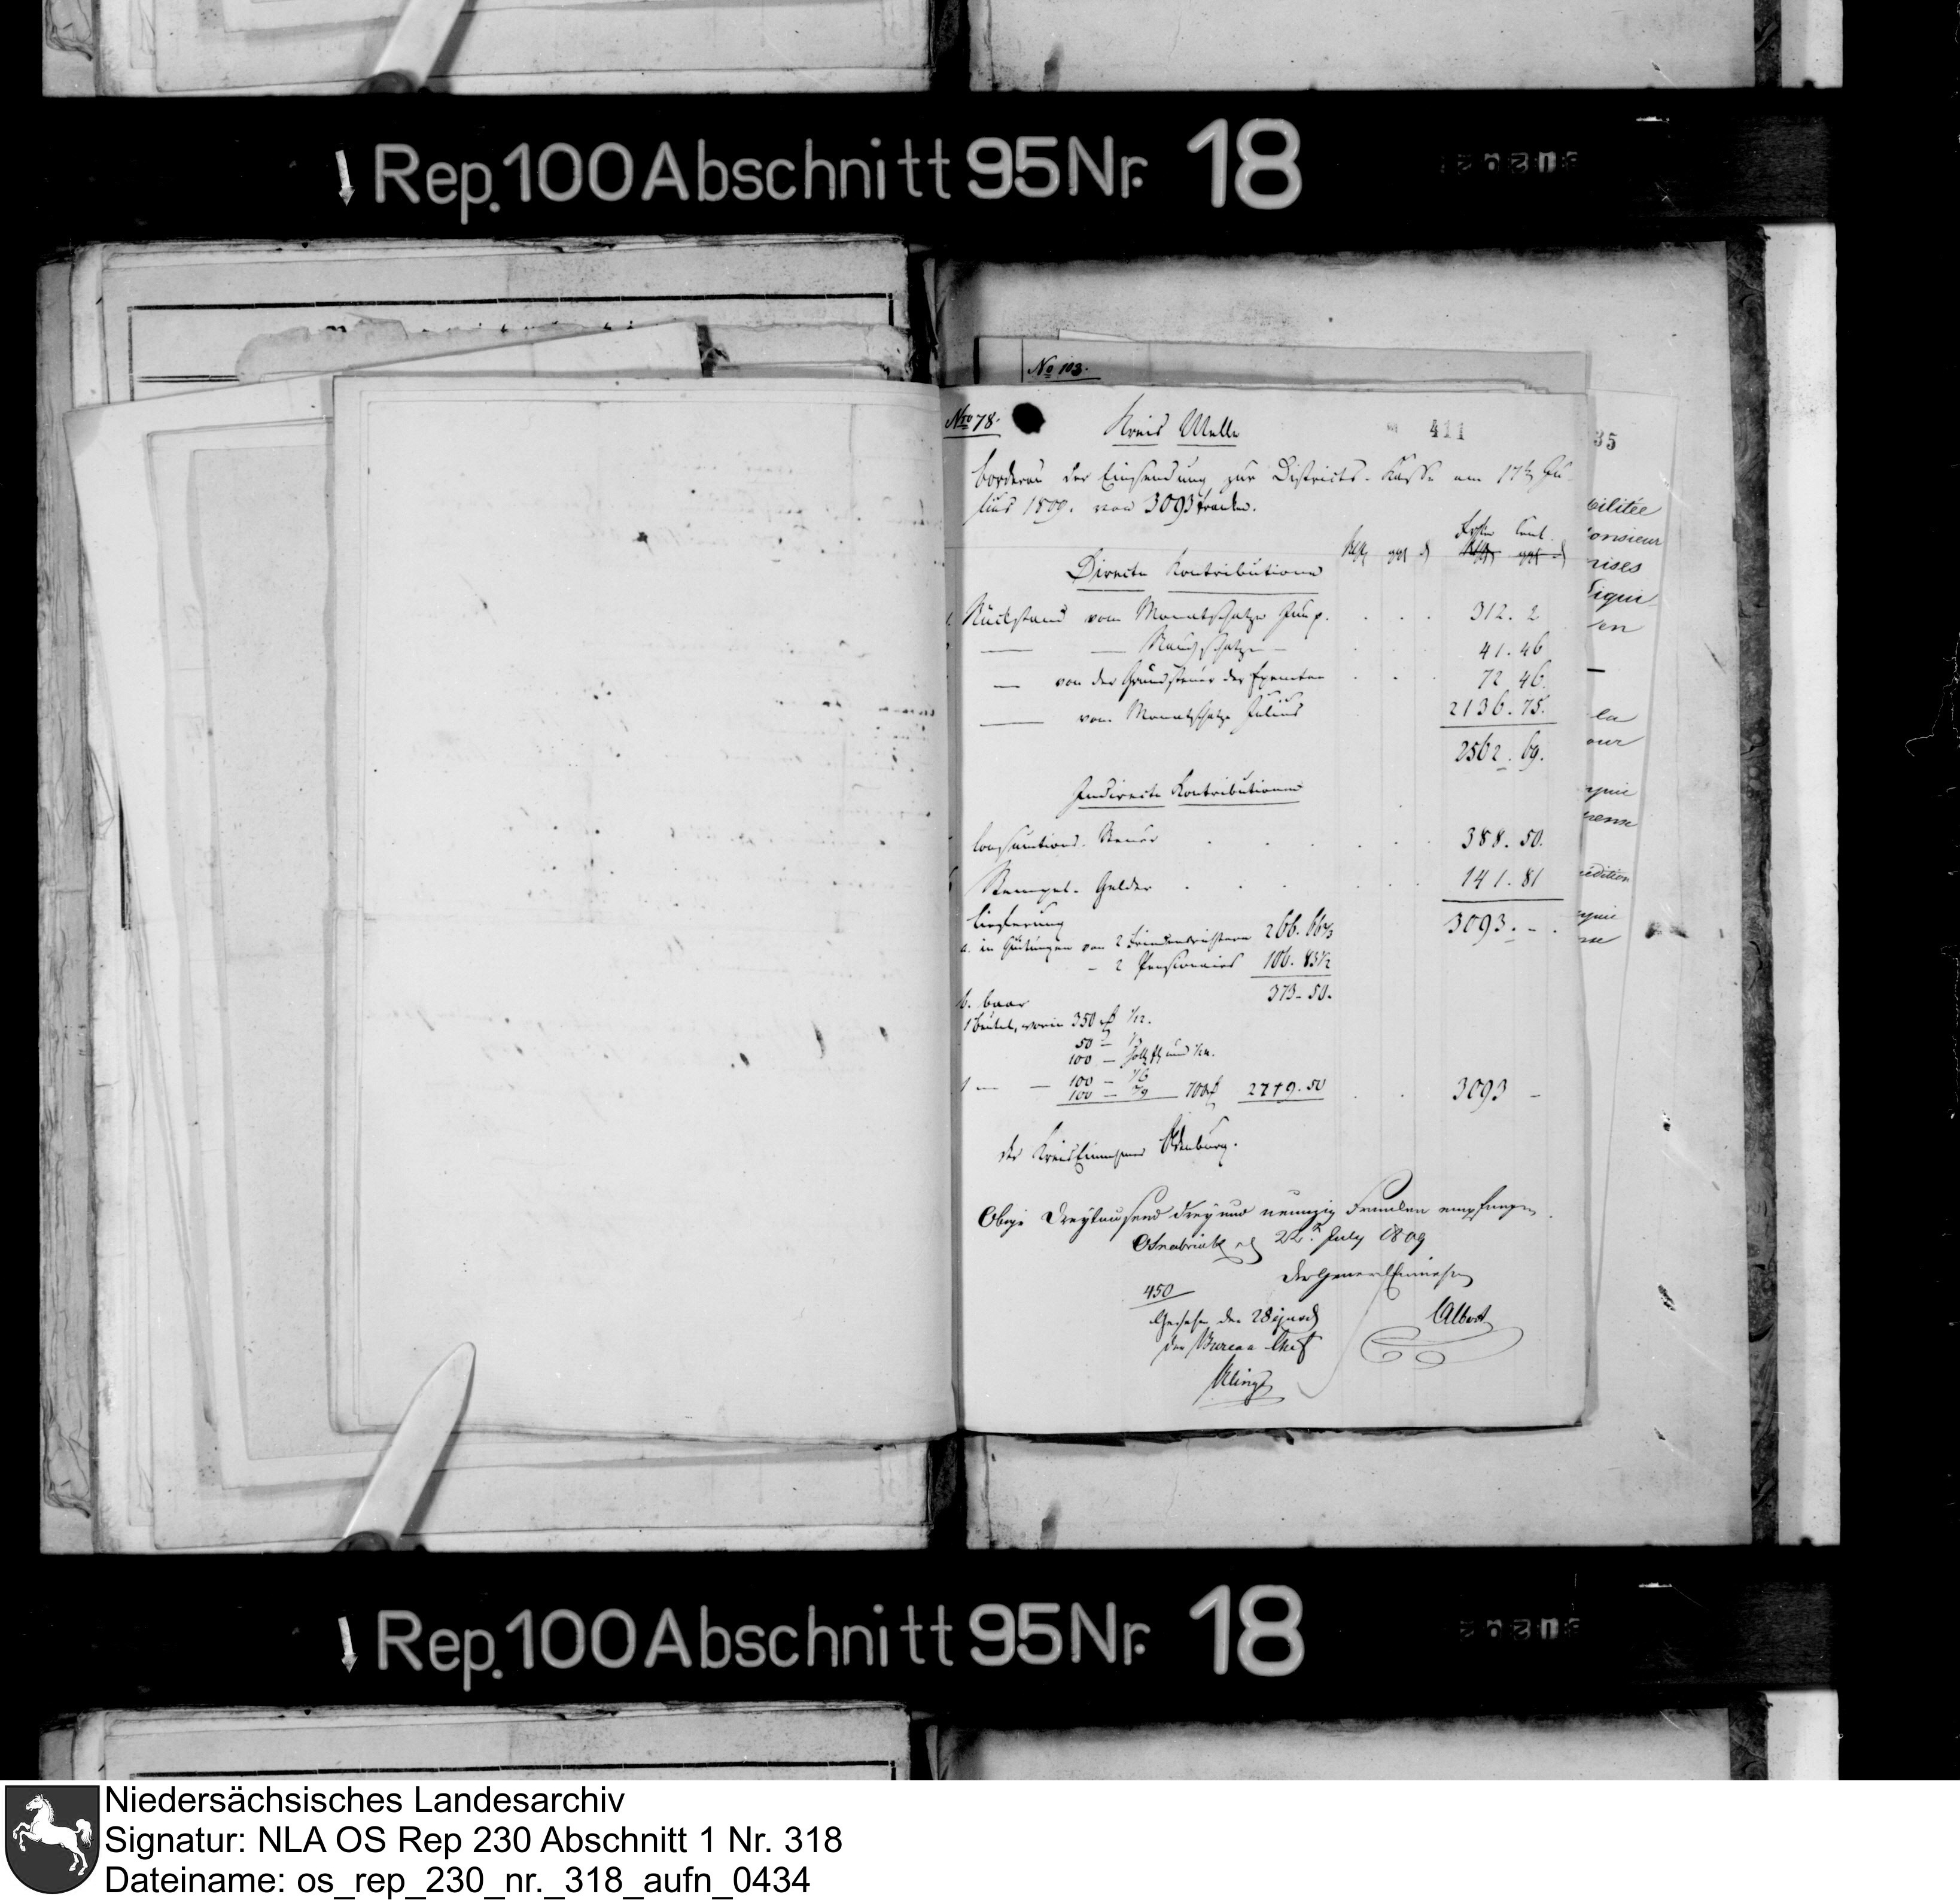 Rep. 100 Abschnitt 95 Nr. 18
No 103.
Nro 78.
Kreis Melle
411
35
Borderau der Einsendung zur Districts-Kasse am 17ten Ju-
lius 1809. von 3093 Franken.
Directe Kontributionen
Rückstand vom Monatschatze Juny. 312. 2
— — Rauchschatze — 41. 46
— von der Grundsteuer der Exemten 72 46.
— vom Monatschatze Julius 2136. 75.
2562. 69.
Indirecte Kontributionen
Consumtions-Steuer 388. 50.
Stempel-Gelder 141. 81
3093. - .
Lieferung
a. in Quitungen von 2 Friedensrichtern 266. 66 2/3
- 2 Pensionairs 106. 83 1/2
373- 50.
b. baar
1 Beutel, worin 350 rt 1/12.
50 -
100 - und 1/24.
1 — — 100 - 1/6
100 - 700 rt 2719. 50 3093 -
der KreisEinnehmer Oldenburg.
Obige Dreytausend drey und neunzig Franken empfangen
Osnabrück d 22t July 1809
der GeneralEinnehmer
450
Gesehen den 28
der Bureau Chef
CAlbert
bilitée
onsieur
rises
Liqui-
en
la
our
édition
Rep. 100 Abschnitt 95 Nr. 18
Niedersächsisches Landesarchiv
Signatur: NLA OS Rep 230 Abschnitt 1 Nr. 318
Dateiname: os_rep_230_nr._318_aufn_0434